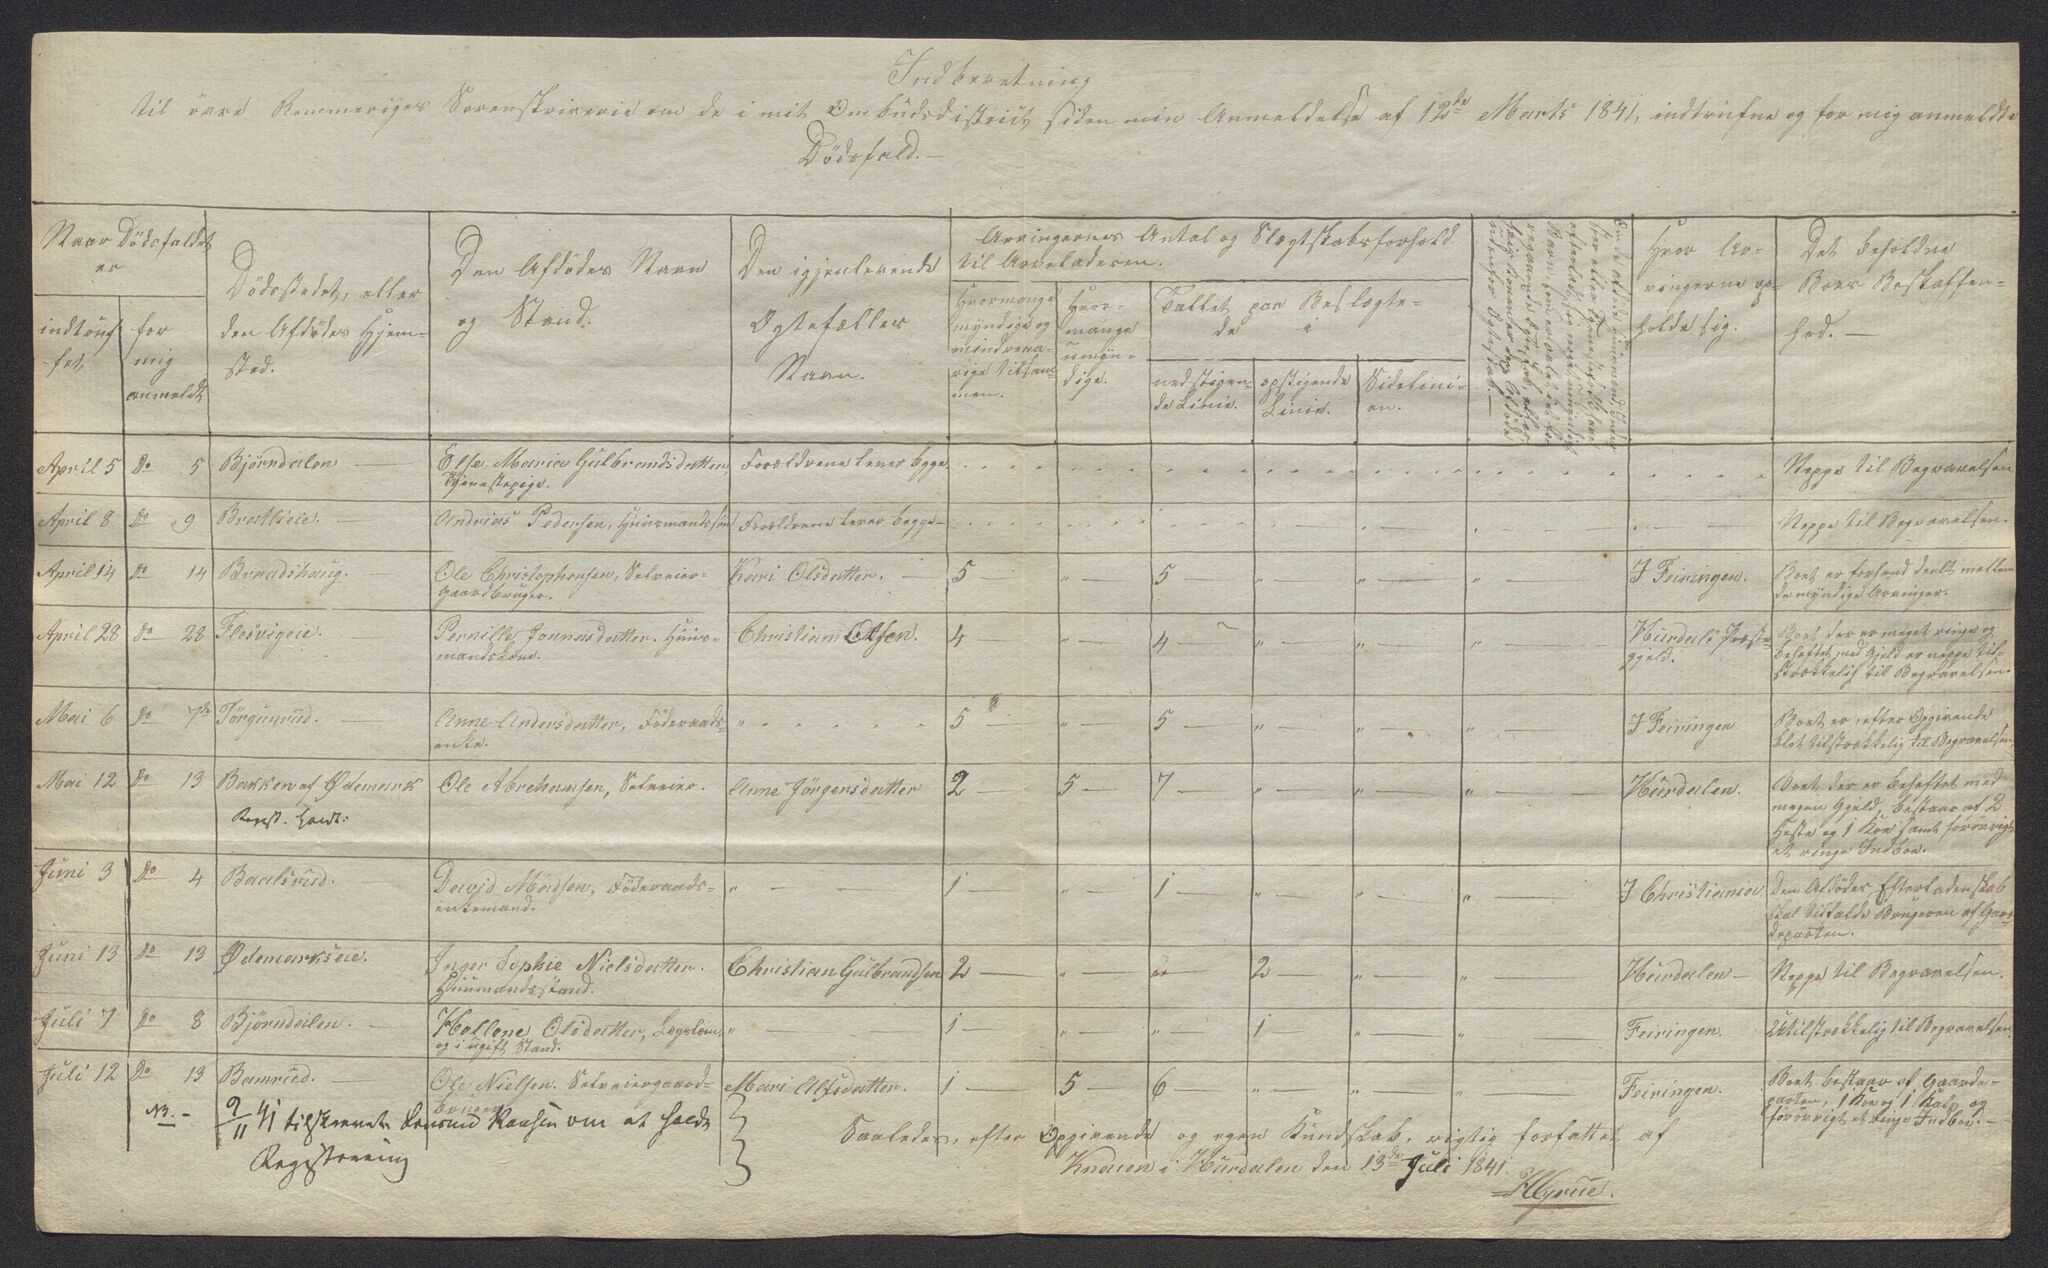 Indberetning
til övre Rommeriges Sorenskriverie om de i mit Ombudsdistrict siden min Anmeldelse af 12te Marts 1841, indtrufne og for mig anmeldte
Dödsfald.—
Naar Dödsfaldet er
indtruffet,
for mig anmeldt
Dödsstedet, eller den Afdödes Hjemsted.
Den Afdödes Navn og Stand.
Den igjenlevende Ægtefælles Navn.
Arvingernes Antal og Slægtskabsforhold til Arveladeren.
Hvormange myndige og mindreaarige tilsammen.
Hvormange umyndige.
Tallet paa Beslægtede i
nedstigende Linie.
opstigende Linie.
Sidelinien.
Hvor Arvingerne opholde sig.
Det beholdne Boes Beskaffenhed.—
April 5 Do 5 Björndalen — Else Maria Gulbrandsdatter, Tjenestepige. Forældrene lever bgge Neppe til Begravelsen
April 8 Do 9 Bratlieie. — Andrias Pedersen, Huusmandssön Forældrene lever begge — Neppe til Begravelsen.
April 14 Do 14 Braadshaug. Ole Christophersen, Selveier-Gaardbruger. Kari Olsdatter. — 5 — " — 5 " " — " — I Feiringen. Boet er forhend deelt mellem de myndige Arvinger.
April 28 Do 28 Flesvigeie. — Pernille Jonnasdatter. Huusmandskone. Christian Olsen. 4 " — 4 — " — " — " Hurdals Præstegjeld. Boet der er meget ringe og behæftet med Gjeld er neppe tilstrækkelig til Begravelsen.
Mai 6 Do 7de Törgunrud. — Anne Andersdatter, Föderaadsenke. " 5 — " — 5 " — " — " — I Feiringen Boet er, efter Opgivende blot tilstrækkelig til Begravelsen.
Mai 12 Do 13 Bakken af Ødemark Ole Abrehamsen, Selveier. Anne Jörgensdatter 2 — 5 — 7 — " — " — " — Hurdalen. Boet der er behæftet med megen Gjeld, bestaar af 2 Heste og 1 Koe samt forövrigt et ringe Indboe.
Regist. holdt:
Juni 3 Do 4 Baalsrud. David Madsen, Föderaads-enkemand. " — 1 — " — 1 — " — " — " — I Christiania Den Afdödes Efterladenskab skal tilfalde Brugeren af Gaardeparten.
Juni 13 Do 13 Ødemarkseie. Inger Sophie Nielsdatter. Huusmandsstand. Christian Gulbrandsen 2 — " — " 2 — " — " — Hurdalen — Neppe til Begravelsen.
Juli 7 Do 8 Björndalen. — Hellene Olsdatter, Logslem. og i ugift Stand. " — 1 — " — " — 1 " — " — Feiringen. Utilstrækkelig til Begravelsen.
Juli 12 Do 13 Bamrud. — Ole Nielsen. Selveiergaardbruger Mari Alfsdatter. 1 — 5 — 6 — " — " — " — Feiringen. Boet bestaar af Gaardeparten, 1 Koe og 1 Kalv og forövrigt et ringe Indboe. —
NB. — 9/11 41 tilskrevet Lensmd Knusen om at holde
Registrering
Saaledes, efter Opgivende og egen Kundskab, rigtig forfattet af
Knaien i Hurdalen den 13de Juli 1841.
Myrue.